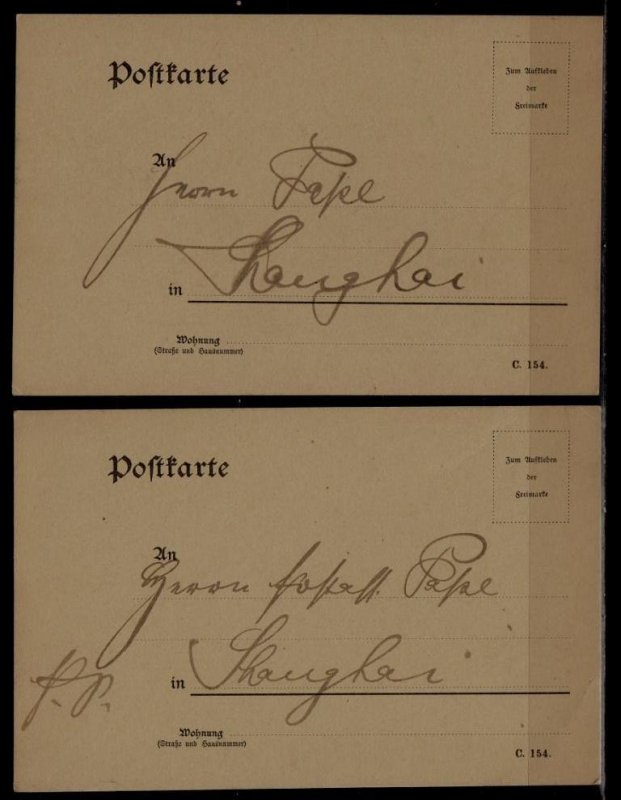 Postkarte
Zum Aufkleben
der
Freimarke
An
Herrn Pape
in Shanghai
Wohnung
(Straße und Hausnummer)
C. 154.
Postkarte
Zum Aufkleben
der
Freimarke
An
Herrn Postass. Pape
in Shanghai
Wohnung
(Straße und Hausnummer)
C. 154.